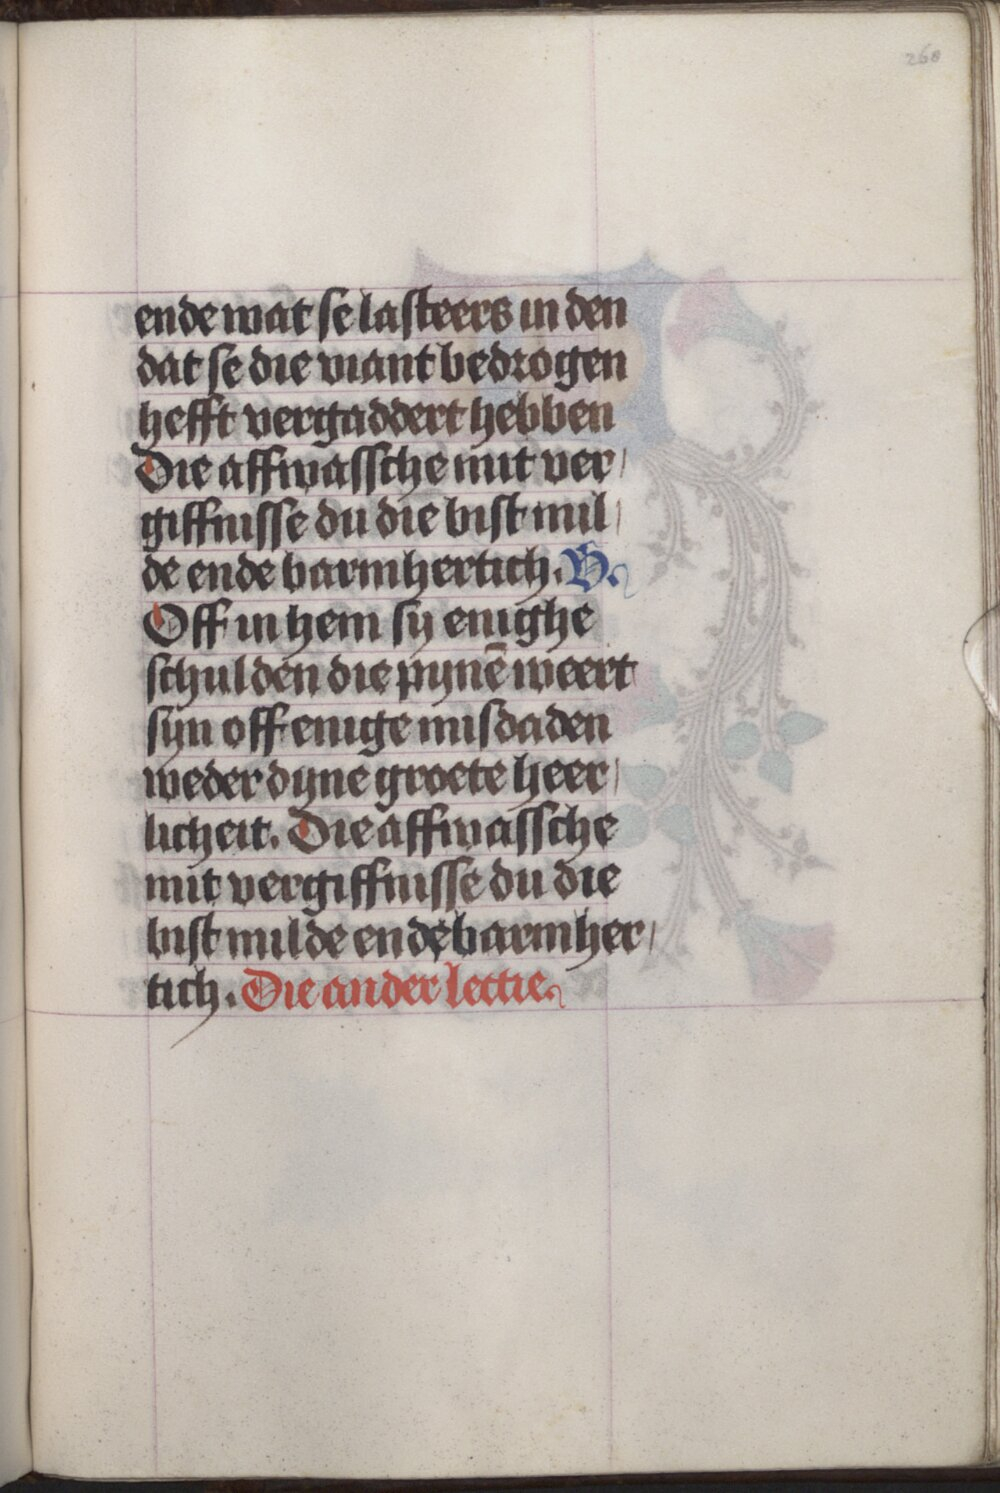 268
ende wat se lasteers in den
dat se die viant bedrogen
hefft vergaddert hebben
Die affwassche mit ver/
giffnisse du die bist mil/
de ende barmhertich. V.
Off in hem sy enighe
schulden die pynē weert
syn off enige misdaden
weder dyne groete heer/
licheit. Die affwassche
mit vergiffnisse du die
bist milde ende barmher/
tich. Die ander lectie.